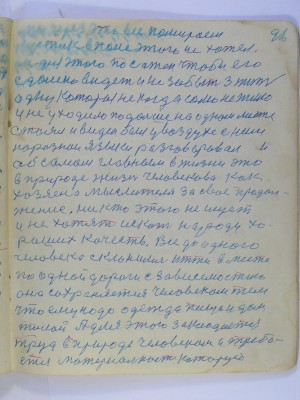 96
все помираем
этого не хотел.
этого послал чтобы его
с далико видет и не забыт З тиху
одну Которая не когда само не тихо
и не уходило подолше на одном месте
стоял и видел был у воздухе с ним
на разном языки разговаривал и
об самом главным в жизни это
в природе жизн человекова как
хозяена мыслителя за свое продол-
жение. ни кто этого не ищет
и не хотят искат природу хо-
роших качеств. Все до одного
человека склонился итти в месте
по одной дороги с зависемостию
она сохраняется человеком тем
что ему надо одежда пища и дом
жилой А для этого закладается
труд в природе человеком и требо-
ется материалност которую